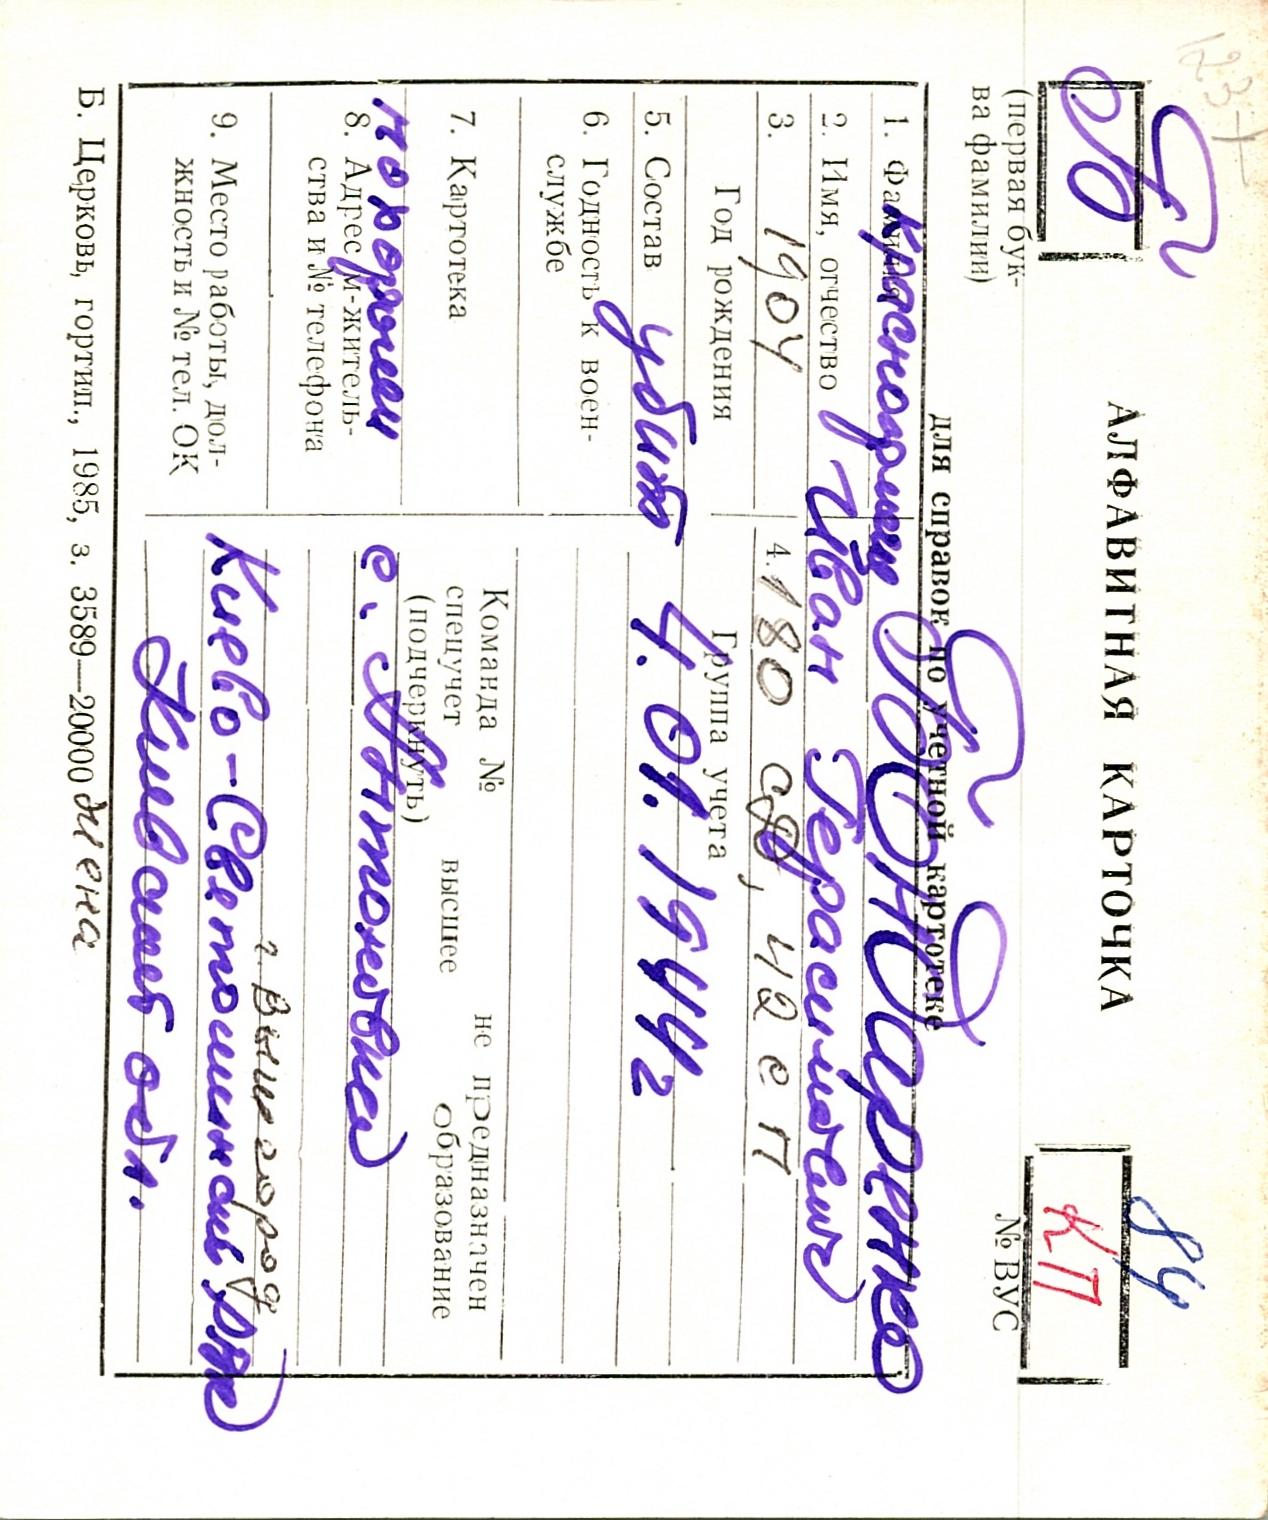 1237
Б
(первая бук-
ва фамилии)
АЛФАВИТНАЯ КАРТОЧКА
для справок по учетной картотеке
84
КП
№ ВУС
1. Фамилия Красноармеец БОНДАРЕНКО
2. Имя, отчество Иван Герасимович
3. 1904
Год рождения
4. 180 сд, 42 сп
Группа учета
5. Состав убит 4.01.1944 г
6. Годность к воен-
службе
7. Картотека
Команда № не предназначен
спецучет высшее образование
(подчеркнуть)
похоронен с. Антоновка
8. Адрес м-житель-
ства и № телефона
г. Вышгород
9. Место работы, дол-
жность и № тел. ОК
Киево-Святошинский
Киевской обл.
Б. Церковь, гортип., 1985, з. 3589—20000